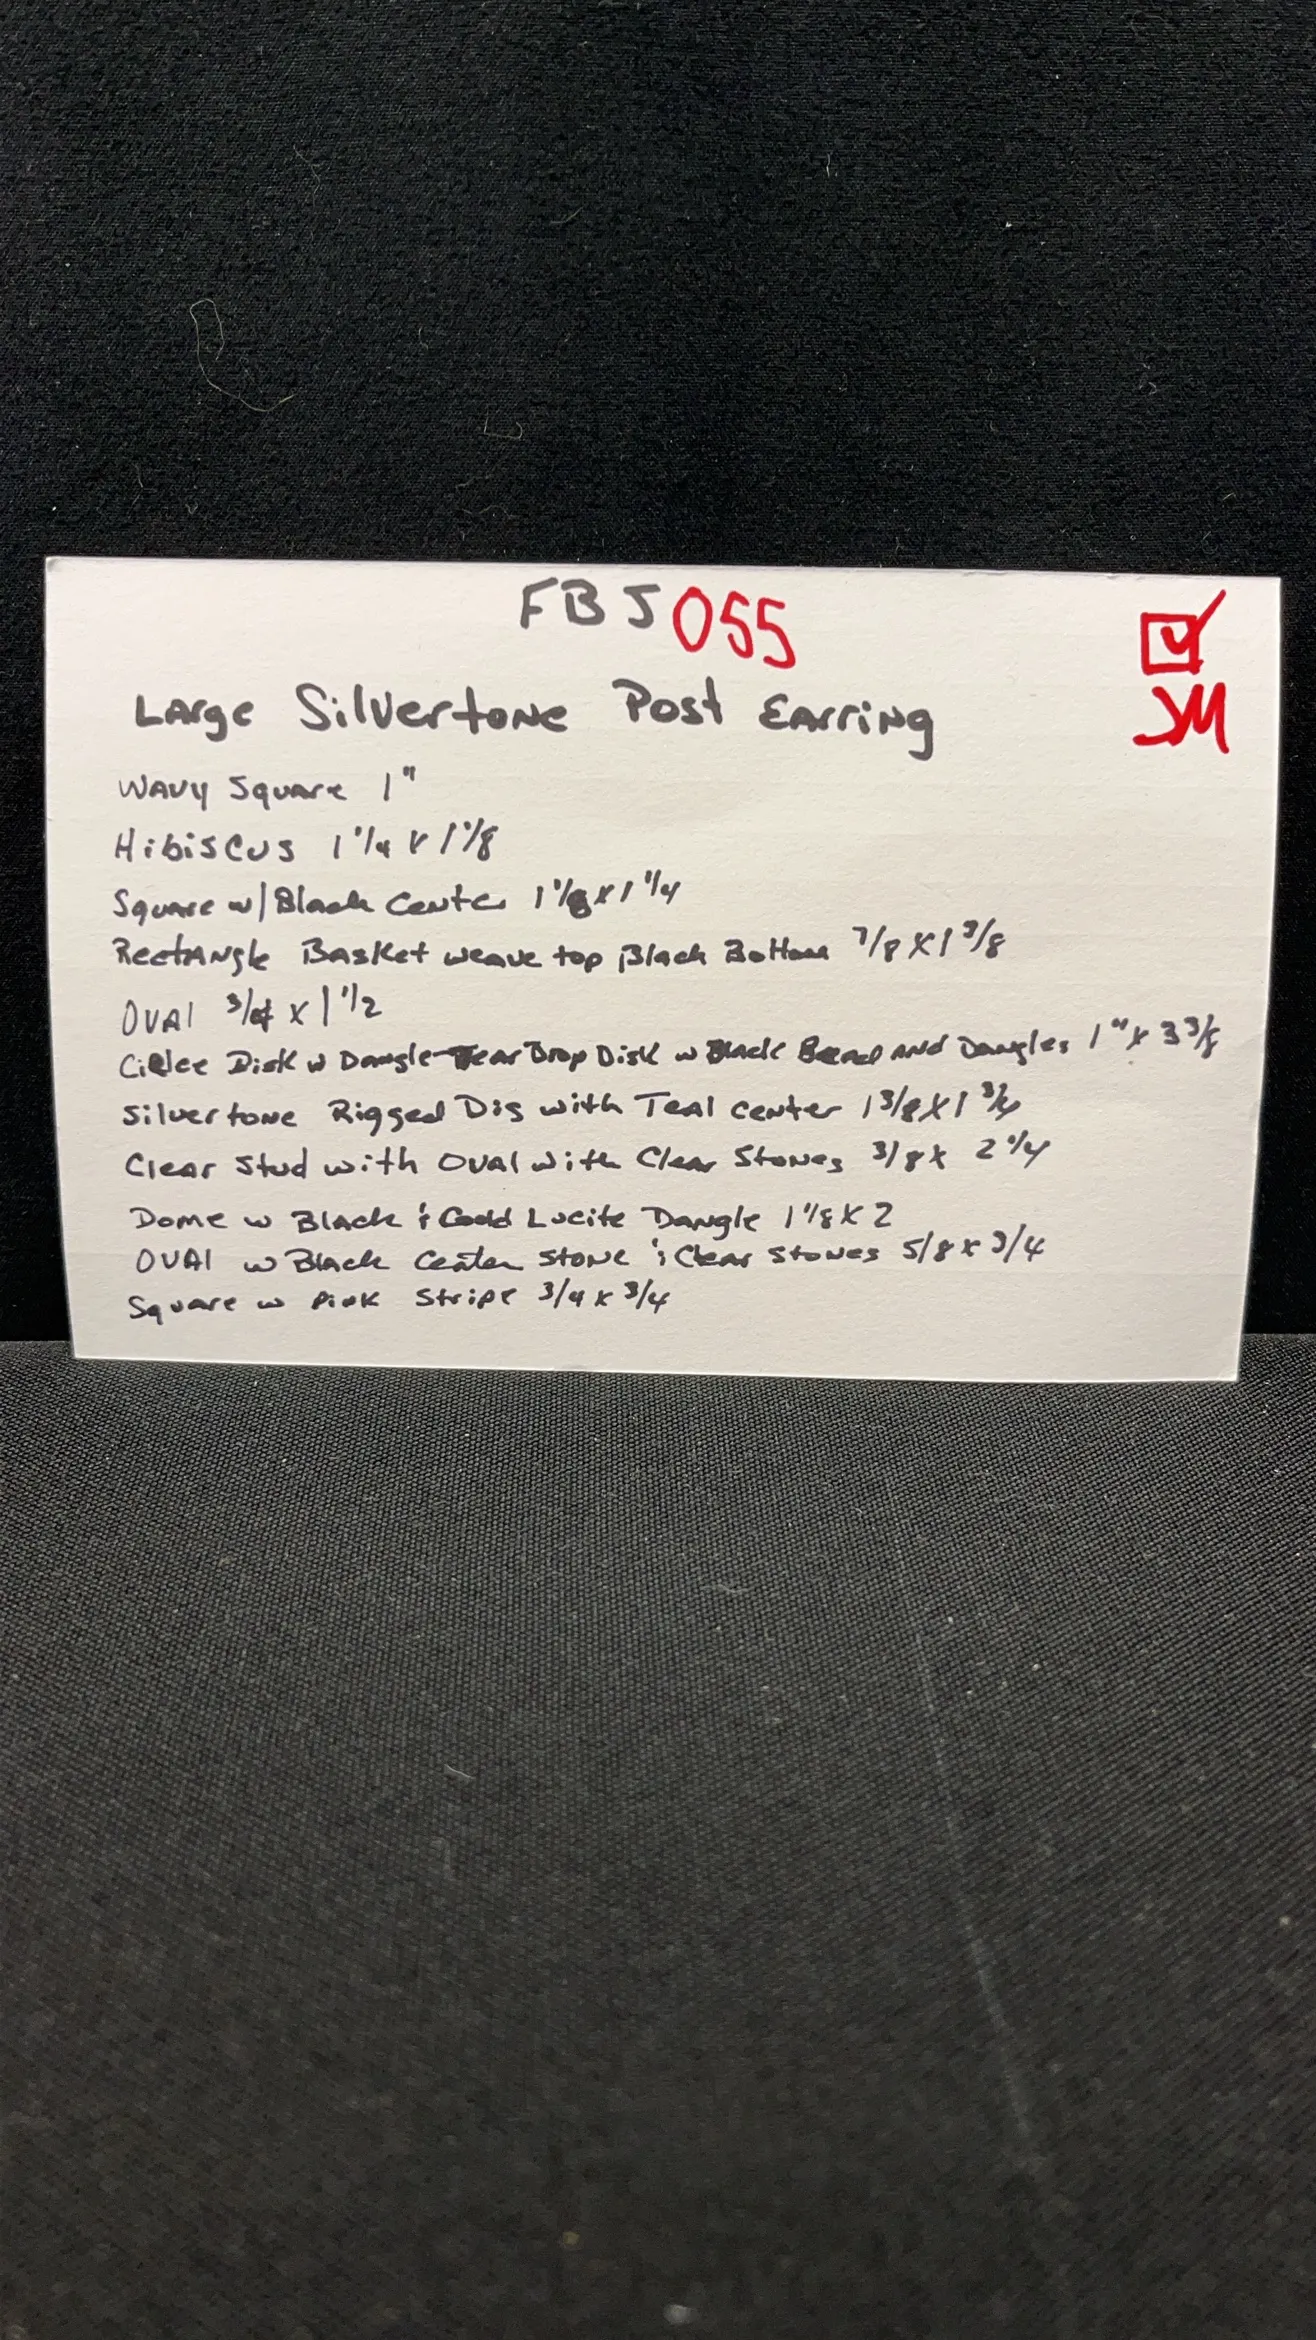 FBJ 055
JM
Large Silvertone Post Earring
Wavy Square 1"
Hibiscus 1 1/4 x 1 1/8
Square w/ Black Center 1 1/8 x 1 1/4
Rectangle Basket weave top Black Bottom 7/8 x 1 3/8
Oval 3/4 x 1 1/2
Disk w Dangle Tear Drop Disk w Black Bead and Dangles 1" x 3 3/8
Silvertone Rigged Dis with Teal center 1 3/8 x 1
Clear Stud with Oval with Clear Stones 3/8 x 2 1/4
Dome w Black & Lucite Dangle 1 1/8 x 2
Oval w Black Center Stone & Clear Stones 5/8 x 3/4
Square w Pink Stripe 3/4 x 3/4